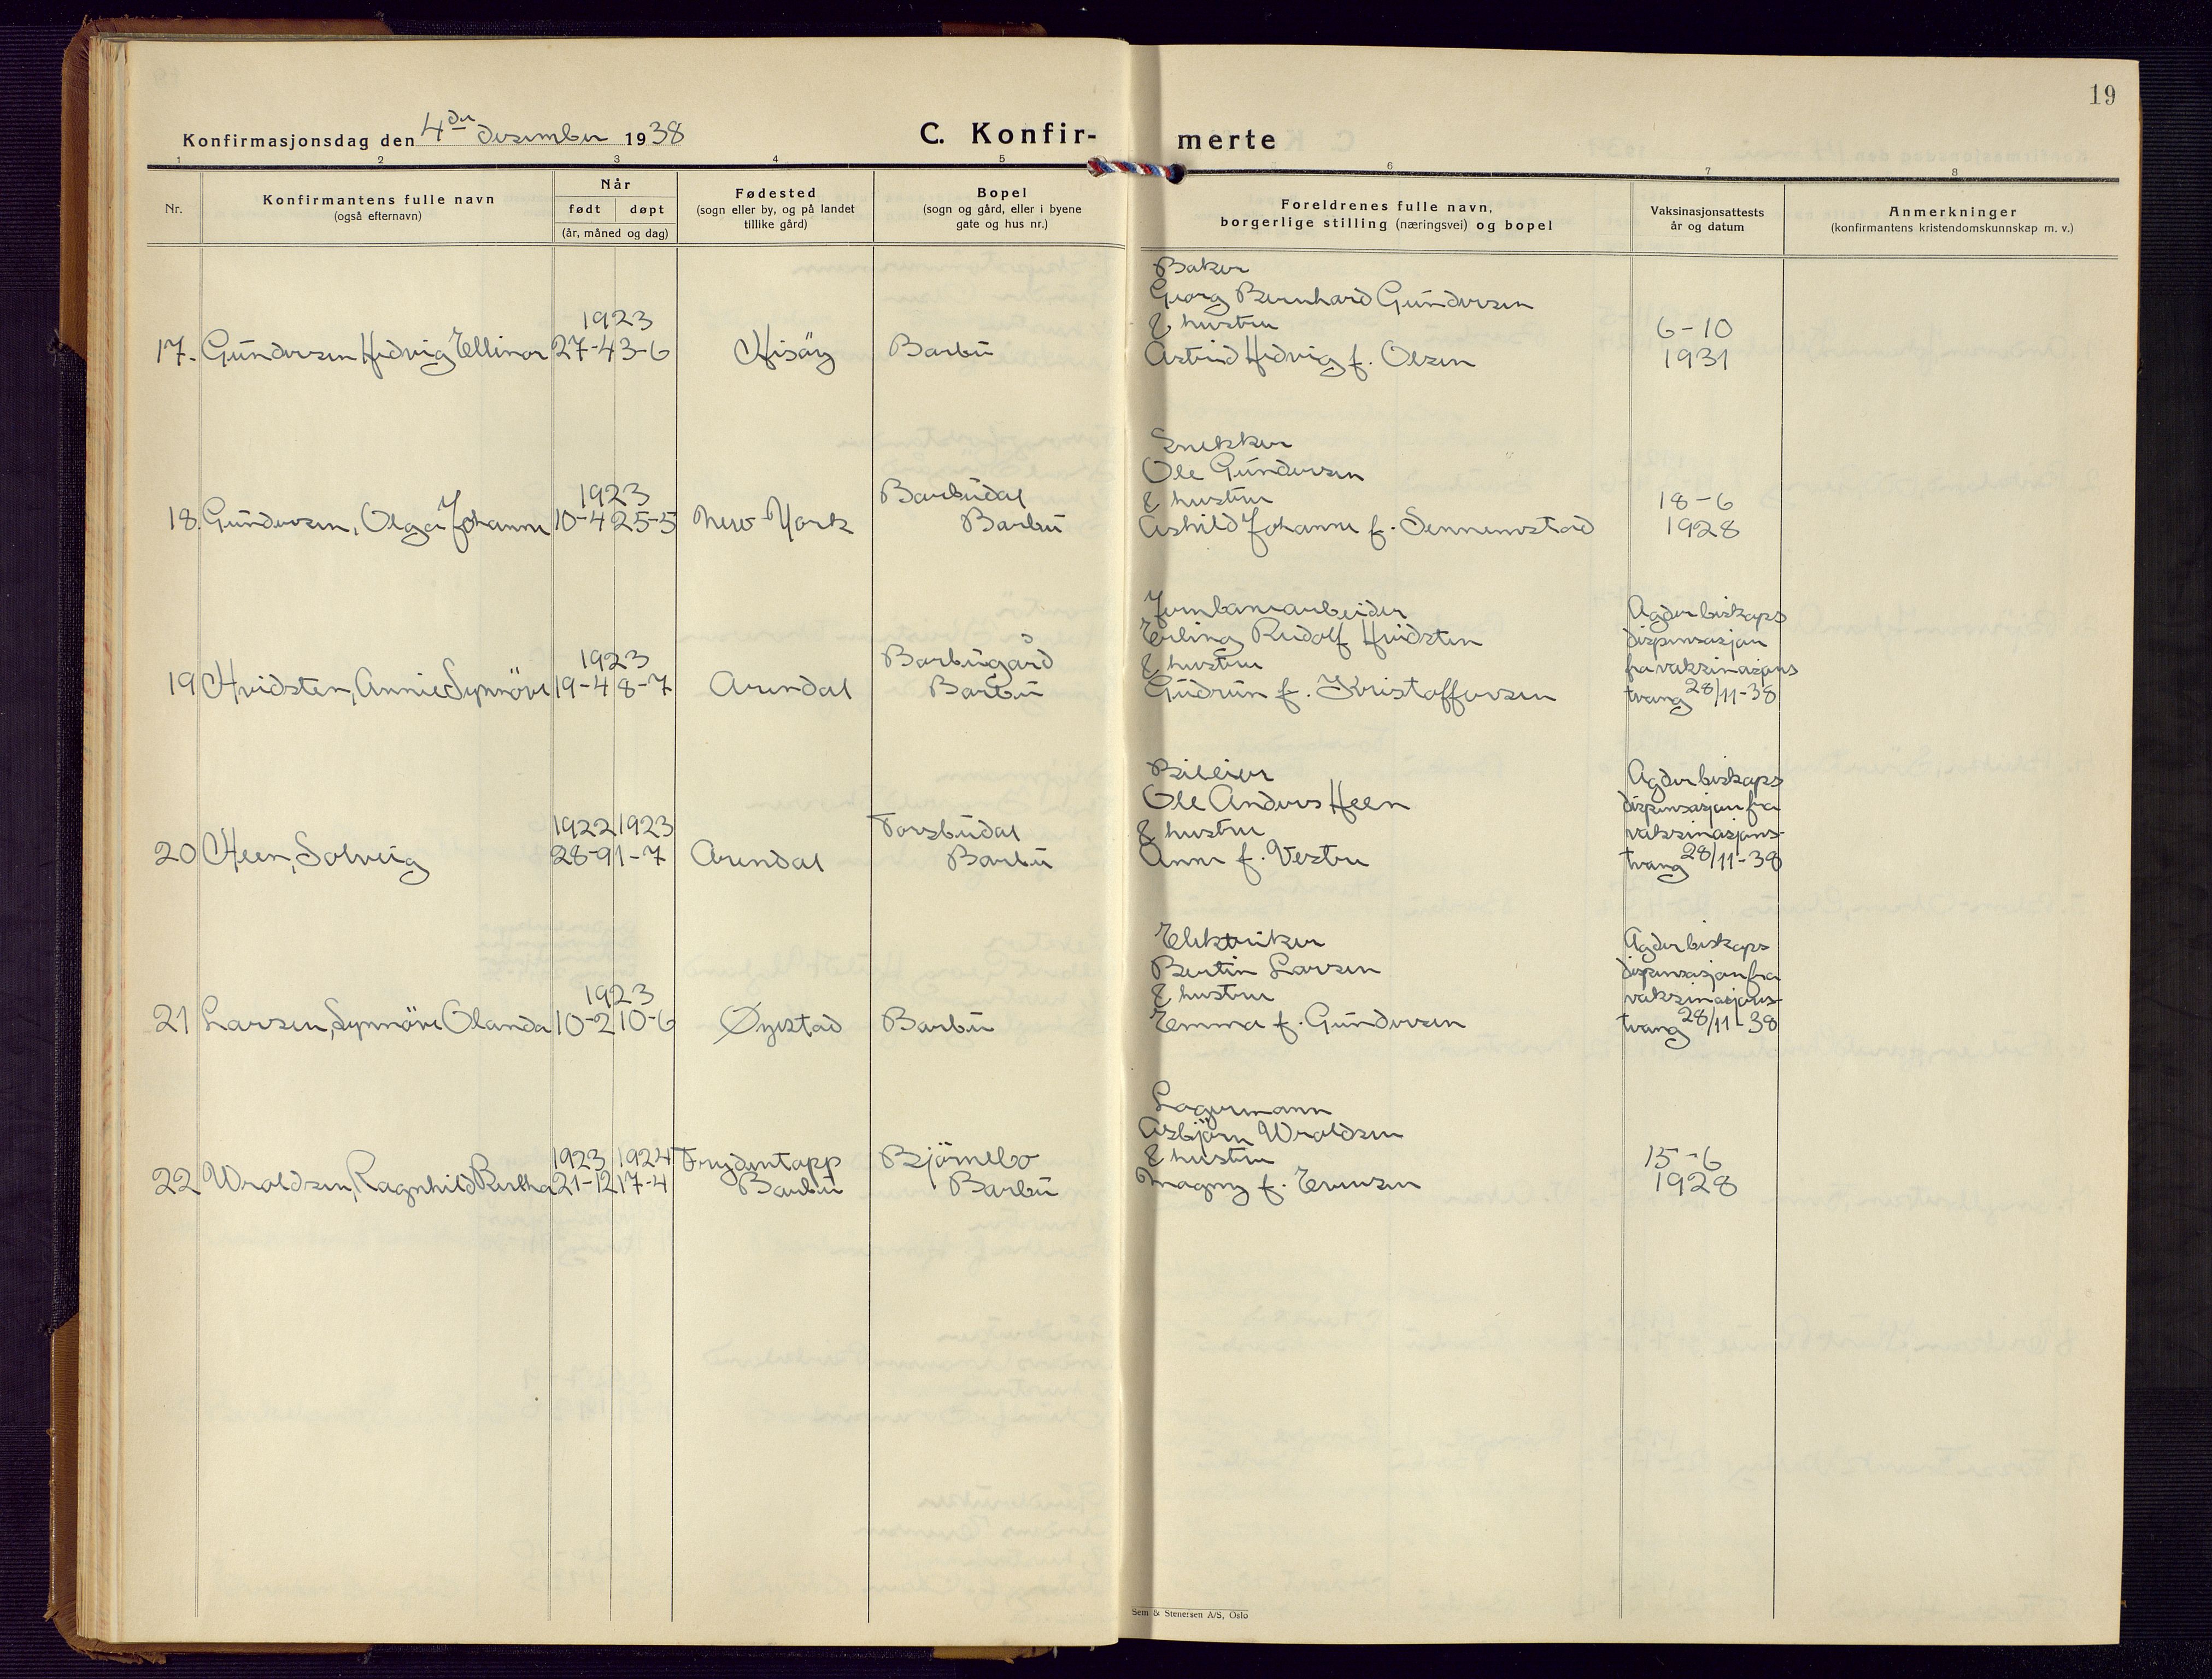 19
Konfirmasjonsdag den 4de desember 1938
C. Konfir- merte
1 2 3 4 5 6 7 8
Nr.
Konfirmantens fulle navn
(også efternavn)
Når
født døpt
(år, måned og dag)
Fødested
(sogn eller by, og på landet
tillike gård)
Bopel
(sogn og gård, eller i byene
gate og hus nr.)
Foreldrenes fulle navn,
borgerlige stilling (næringsvei) og bopel
Vaksinasjonsattests
år og datum
Anmerkninger
(konfirmantens kristendomskunnskap m. v.)
Baker
Georg Bernhard Gundersen
1923 & hustru 6-10
17. Gundersen Hedvig Ellinor 27-4 3-6 Hisöy Barbu Astrid Hedvig f. Olsen 1931
Snekker
Ole Gundersen
1923 Barbudal & hustru 18-6
18. Gundersen, Olga Johanne 10-4 25-5 New-York Barbu Åshild Johanne f. Sennumstad 1928
Jernbanearbeider Agder biskops
Erling Rudolf Hvidsten dispensasjon
1923 Barbugård & hustru fra vaksinasjons
19 Hvidsten, Annie Synnöve 19-4 8-7 Arendal Barbu Gudrun f. Kristoffersen tvang 28/11-38
Bileier Agder biskops
Ole Anders Heen dispensasjon fra
1922 1923 Torsbudal & hustru vaksinasjons-
20 Heen, Solveig 28-9 1-7 Arendal Barbu Anne f. Vestre tvang 28/11-38
Elektriker Agder biskops
Bertin Larsen dispensasjon fra
1923 & hustru vaksinasjons-
21 Larsen, Synnöve Olanda 10-2 10-6 Øyestad Barbu Emma f. Gundersen tvang 28/11-38
Lagermann
Asbjörn Wroldsen
1923 1924 Frydentopp Bjørnebo & hustru 15-6
22 Wroldsen, Ragnhild Bertha 21-12 17-4 Barbu Barbu Magny f. Evensen 1928
Sem & Stenersen A/S, Oslo